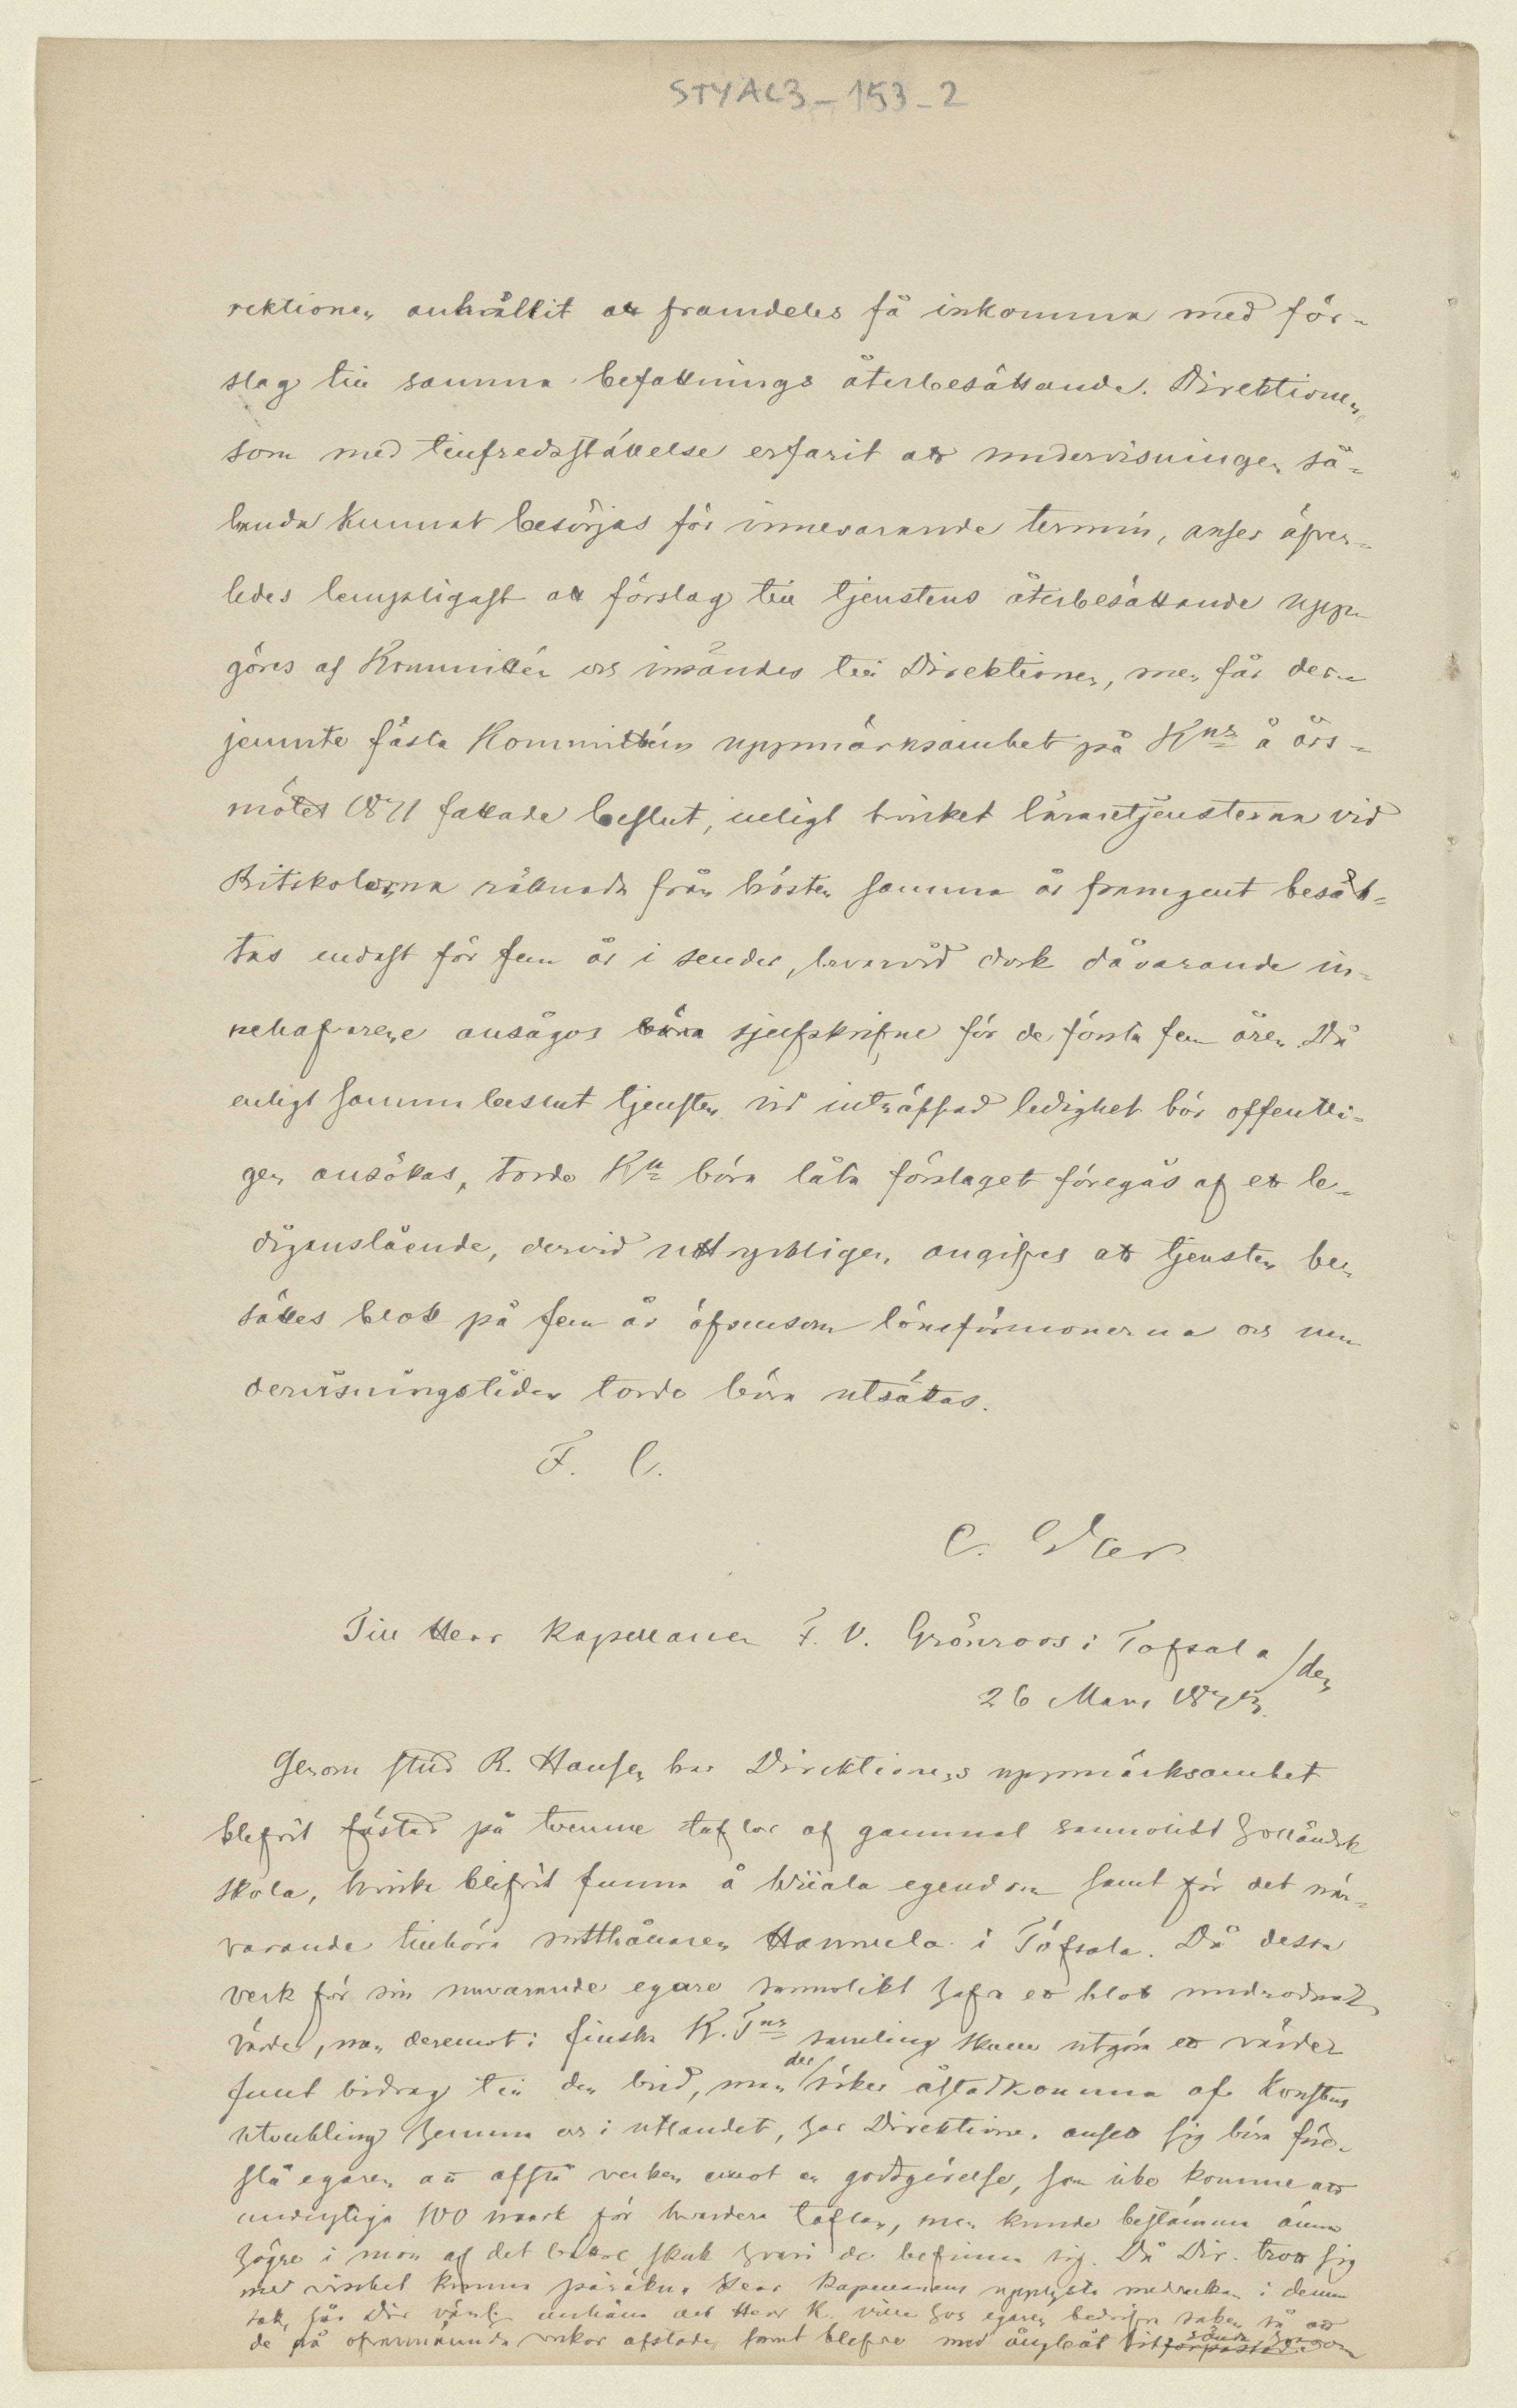 STYAL3-153-2
rektionen anhållit att framdeles få inkomma med för-
slag till samma befattnings återbesättande. Direktionen,
som med tillfredsställelse erfarit att undervisningen så-
lunda kunnat besörjas för innevarande termin, anser äfven-
ledes lempligast att förslag till tjenstens återbesättande upp-
göres af Kommittén och insändes till Direktionen, men får der-
jemnte fästa Kommitténs uppmärksamhet på Kns å års-
mötet 1871 fattade beslut, enligt hvilket läraretjensterna vid
Ritskolorna räknadt från hösten samma år framgent besät-
tas endast för fem år i sender, hvarvid dock dåvarande in-
nehafvarene ansågos sjelfskrifne för de första fem åren. Då
enligt samma beslut tjensten vid inträffad ledighet bör offentli-
gen ansökas, torde Kn böra låta förslaget föregås af ett le-
diganslående, dervid uttryckligen angifves att tjensten be-
sättes blott på fem år äfvensom löneförmonerna och un-
dervisningstiden torde böra utsättas.
F. C.
C.
Till Herr Kapellanen F. V. Grönroos i Töfsala den
26 Mars
Genom stud R. Hausen har Direktionens uppmärksamhet
blifvit fästad på tvenne taflor af gammal sannolikt holländsk
skola, hvilka blifvit funna å Wiiala egendom samt för det när-
varande tillhöra Hannula i Töfsala. Då dessa
verk för sin nuvarande egare sannolikt hafva ett blott underordnadt
värde, men deremot i finska K. Fns samling skulle utgöra ett värde-
fullt bidrag till den bild, man der söker åstadkomma af konstens
utveckling hemma och i utlandet, har Direktionen ansett sig böra före-
slå egaren att afstå verken emot en godtgörelse, som icke komme att
understiga 100 mark för hvardera taflan, men kunde bestämmas ännu
högre i mon af det bättre skick hvari de befinna sig. Då Dir. trott sig
med visshet kunna påräkna Herr Kapellanens upplysta medverkan i denna
sak, får Dir vänl. anhålla att Herr K. ville hos egaren bedrifva saken så att
de på ofvannämnda vilkor afstodes samt blefve med ångbåt hit sända